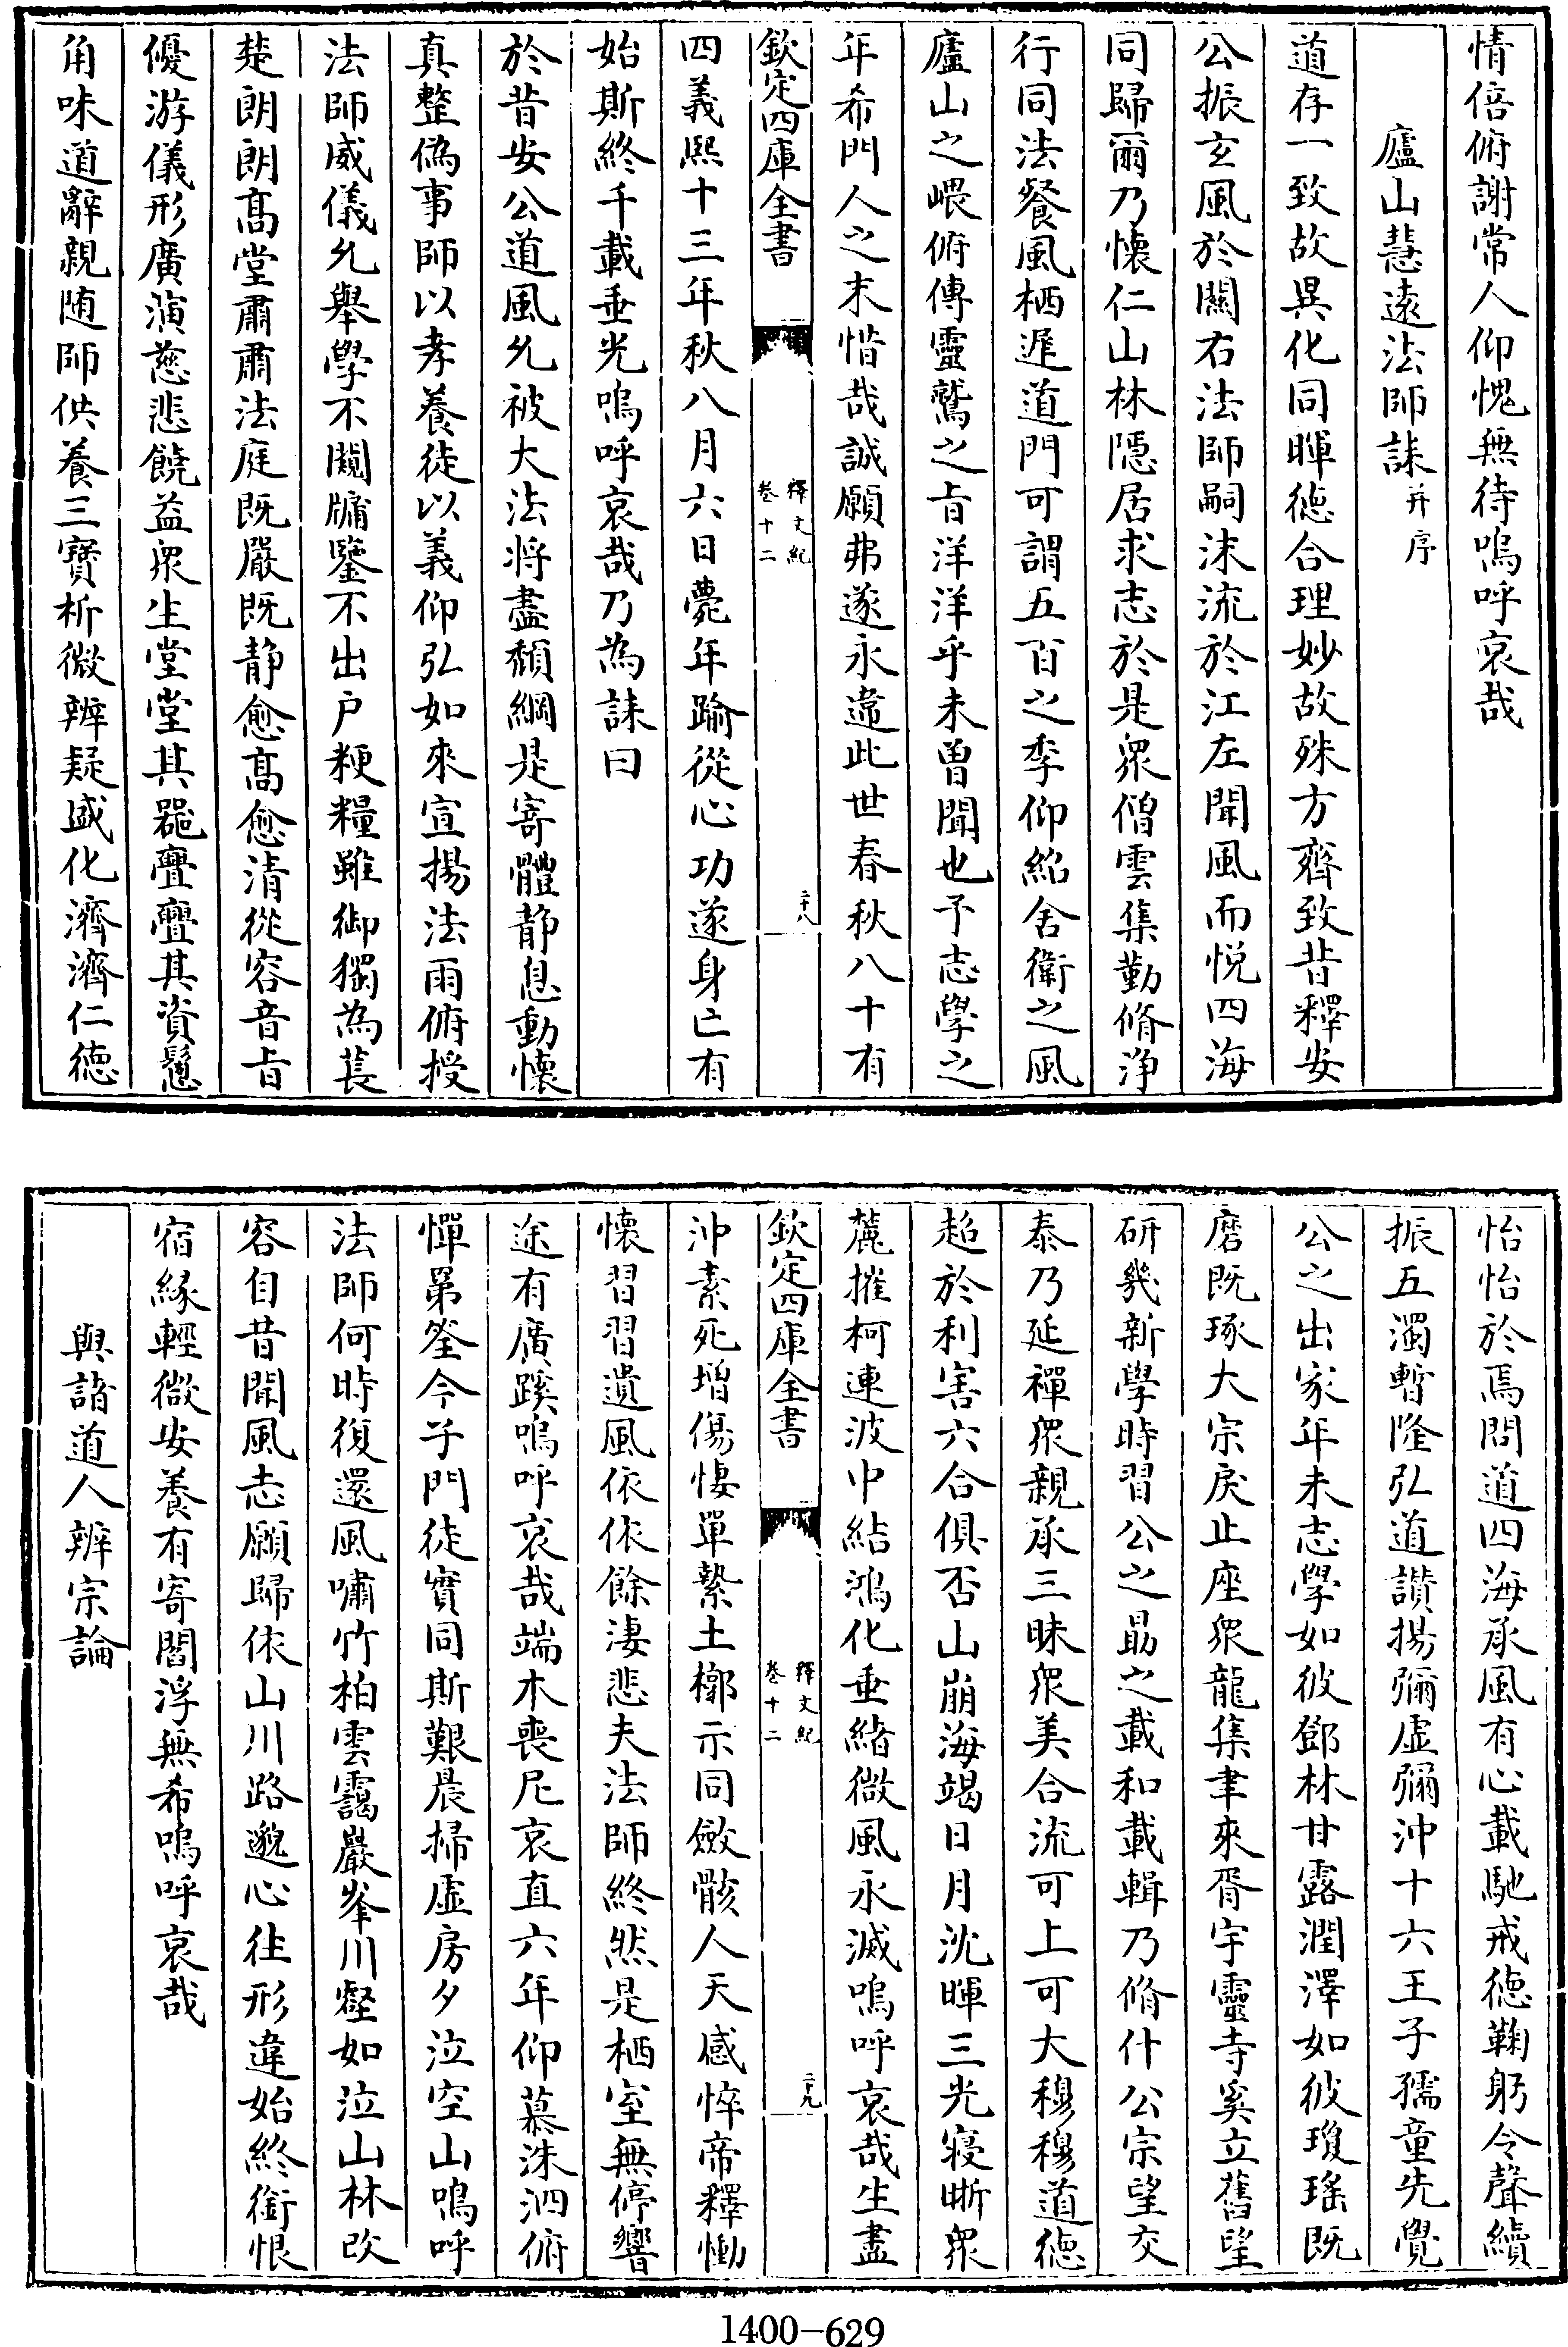 情倍俯謝常人仰愧無待嗚呼哀哉
廬山慧遠法師誄并序
道存一致故異化同暉德合理妙故殊方齊致昔釋安
公振玄風於關右法師嗣沫流於江左聞風而悦四海
同歸爾乃懷仁山林隱居求志於是衆僧雲集勤脩淨
行同法餐風栖遲道門可謂五百之季仰紹舍衛之風
廬山之嵔俯傳靈鷲之㫖洋洋乎未曽聞也予志學之
年希門人之末惜哉誠願弗遂永違此世春秋八十有
欽定四庫全書
釋文紀
卷十二
二十八
四義熙十三年秋八月六日薨年踰從心功遂身亡有
始斯終千載垂光嗚呼哀哉乃為誄曰
於昔安公道風允被大法将盡頽綱是寄體静息動懷
真整偽事師以孝養徒以義仰弘如來宣揚法雨俯授
法師威儀允舉學不闚牖鑒不出户粳糧雖御獨為萇
楚朗朗髙堂肅肅法庭既嚴既静愈髙愈清從容音㫖
優游儀形廣演慈悲饒益衆生堂堂其器亹亹其資總
角味道辭親随師供養三寳析微辨疑盛化濟濟仁德
怡怡於焉問道四海承風有心載馳戒德鞠躬令聲續
振五濁暫隆弘道讃揚彌虛彌沖十六王子孺童先覺
公之出家年未志學如彼鄧林甘露潤澤如彼瓊瑤既
磨既琢大宗戾止座衆龍集聿來胥宇靈寺奚立舊望
研幾新學時習公之勗之載和載輯乃脩什公宗望交
泰乃延禪衆親承三昧衆美合流可上可大穆穆道德
超於利害六合俱否山崩海竭日月沈暉三光寢晰衆
麓摧柯連波中結鴻化垂緒微風永滅嗚呼哀哉生盡
欽定四庫全書
釋文紀
卷十二
二十九
沖素死增傷悽單縶土槨示同斂骸人天感悴帝釋慟
懷習習遺風依依餘淒悲夫法師終然是栖室無停響
途有廣蹊嗚呼哀哉端木喪尼哀直六年仰慕洙泗俯
憚罤筌今子門徒實同斯艱晨掃虛房夕泣空山嗚呼
法師何時復還風嘯竹柏雲靄巖峯川壑如泣山林改
容自昔聞風志願歸依山川路邈心往形違始終銜恨
宿緣輕微安養有寄閻浮無希嗚呼哀哉
與諸道人辨宗論
1400-629